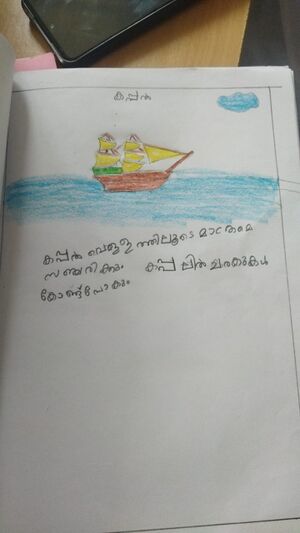 കപ്പൽ
കപ്പൽ വെള്ളത്തിലൂടെ മാത്രമെ
സഞ്ചരിക്കും കപ്പലിൽ ചരക്കുകൾ
കോണ്ട്പോകും